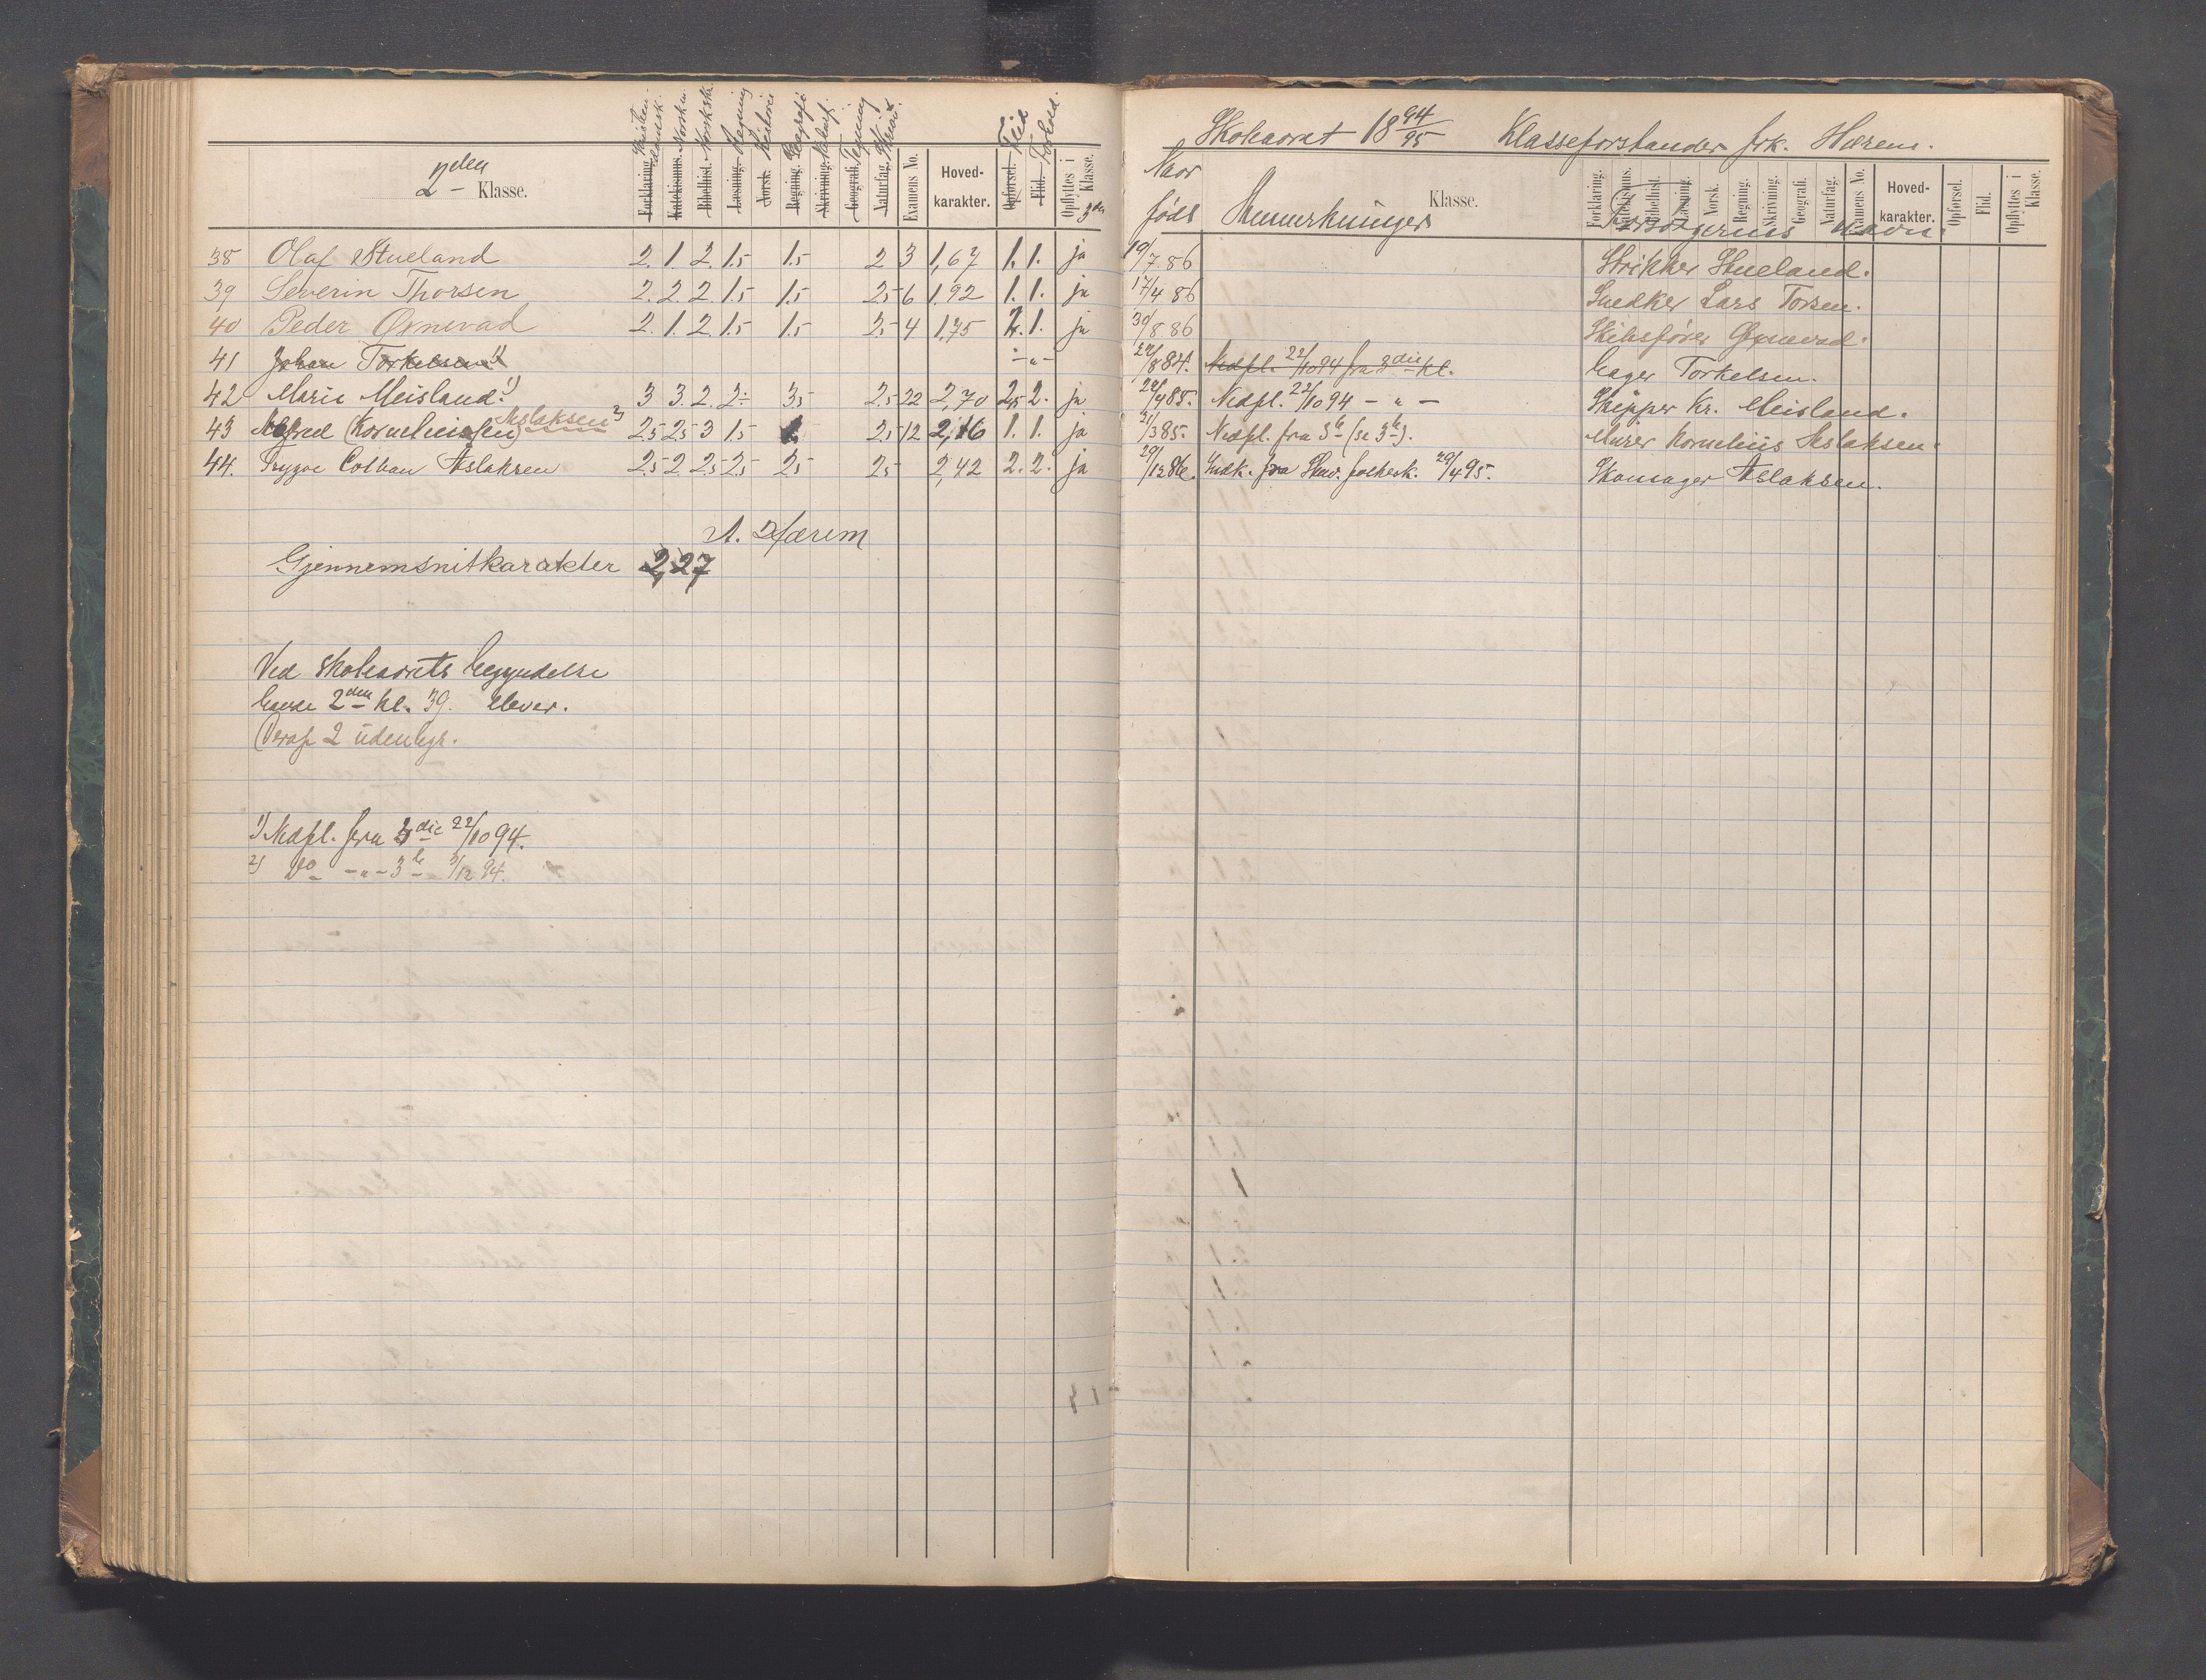 2den Klasse.
Forklaring. Katekismus. Bibelhist. Læsning. Norsk. Regning. Skrivning. Geografi. Naturfag. Examens No. Hoved-karakter. Opførsel. Flid. Opflyttes i 3die Klasse.
Kristendomsk. Norsk m. Norsk sk. Regning Historie Geografi Naturf. Tegning Skriv. Flid Forhold.
38 Olaf Stueland 2. 1. 2. 1.5 1.5 2 3 1,67 1. 1. ja
39 Severin Thorsen 2. 2. 2. 1.5 1.5 2.5 6 1.92 1. 1. ja
40 Peder Qvinevad 2. 1. 2. 1.5 1.5 2.5 4 1,75 1. 1. ja
41 Johan Torkelsen 1) - " -
42 Marie Meisland. 1) 3 3. 2. 2 3.5 2.5 22 2,70 2,5 2. ja
43 Alfred (Korneliussen) Aslaksen 2) 2.5 2.5 3 1.5 2.5 12 2,16 1. 1. ja
44. Trygve Colban Aslaksen 2.5 2. 2.5 2.5 2.5 2.5 2,42 2. 2. ja
A. Hærem
Gjennemsnitkarakter 2,27
Ved skoleaarets begyndelse
havde 2den kl. 39. elever.
(Deraf 2 udenbys.
1) Nedfl. fra 3die 22/10 94.
2) Do - " - 3die 3/12 94.
Skoleaaret 1894/95 Klasseforstander frk. Hærem.
Naar født Anmerkninger Klasse. Forsørgerens navn.
Forklaring. Katekismus. Bibelhist. Læsning. Norsk. Regning. Skrivning. Geografi. Naturfag. Examens No. Hoved-karakter. Opførsel. Flid. Opflyttes i Klasse.
19/7.86 Strikker Stueland.
17/4 86 Snedker Lars Torsen.
30/8 86 Skibsfører Qvinevad.
24/8 84. Nedfl. 22/10 94 fra 3die kl. Bager Torkelsen.
24/4 85. Nedfl. 22/10 94 - " - Skipper Kr. Meisland.
31/3 85. Nedfl. fra 3die (se 3die). Murer Kornelius Aslaksen.
29/12 86. Indk. fra Stav. folkesk. 29/4 95. Skomager Aslaksen.